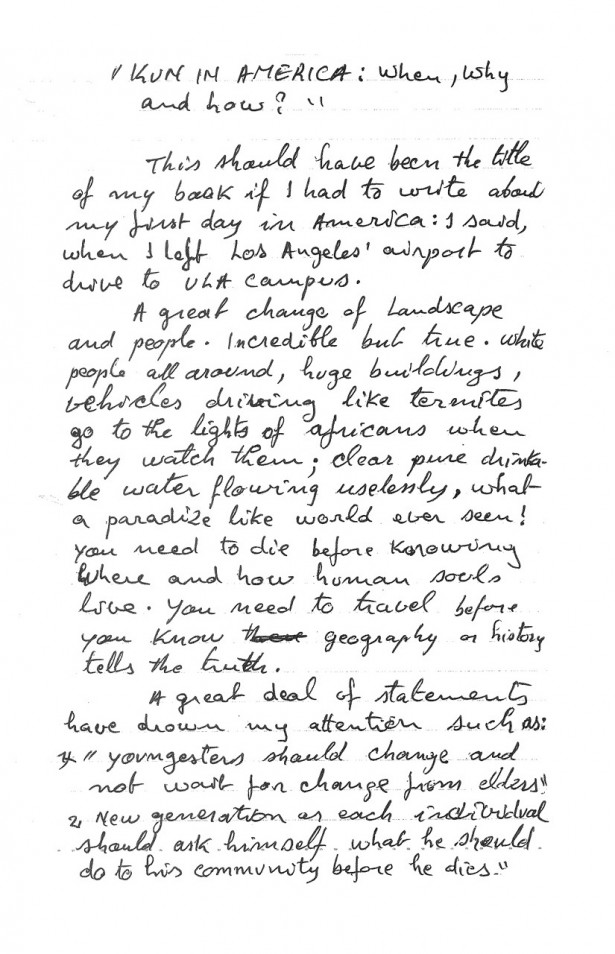 "KUN IN AMERICA: When, Why
and how?"
This should have been the title
of my book if I had to write about
my first day in America: I said,
when I left Los Angeles' airport to
drive to ULA campus.
A great change of Landscape
and people. Incredible but true. White
people all around, huge buildings,
vehicles driving like termites
go to the lights of africans when
they watch them; clear pure drinka-
ble water flowing uselessly, what
a paradize like world ever seen!
You need to die before Knowing
Where and how human souls
live. You need to travel before
you know geography or history
tells the truth.
A great deal of statements
have drown my attention such as:
1, "youngesters should change and
not wait for change from elders"
2, New generation or each individual
should ask himself what he should
do to his community before he dies."